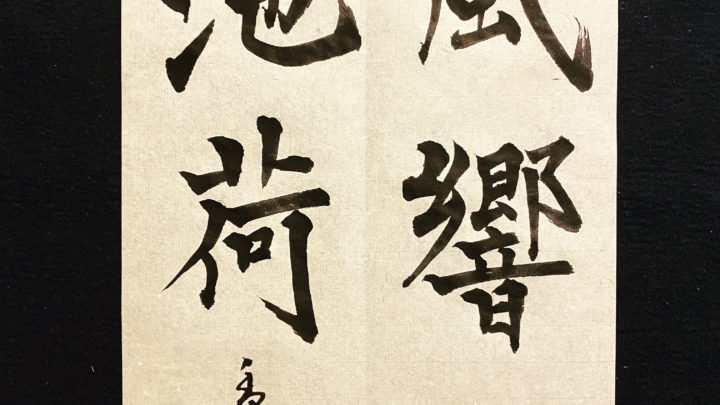 風響
池荷
香